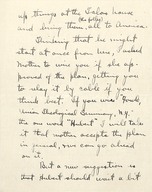 up things at the Talas house
(the folks)
and bring them all to America.
Thinking that he might
start at once from here, asked
Mother to wire you if she ap-
proved of the plan, getting you
to relay it by cable if you
think best. If you wire "Food,
Union Theological Seminary, N.Y."
the one word "Hubert" I will take
it that mother accepts the plan
in general, and can go ahead
on it.
But a new suggestion is
that Hubert should wait a bit